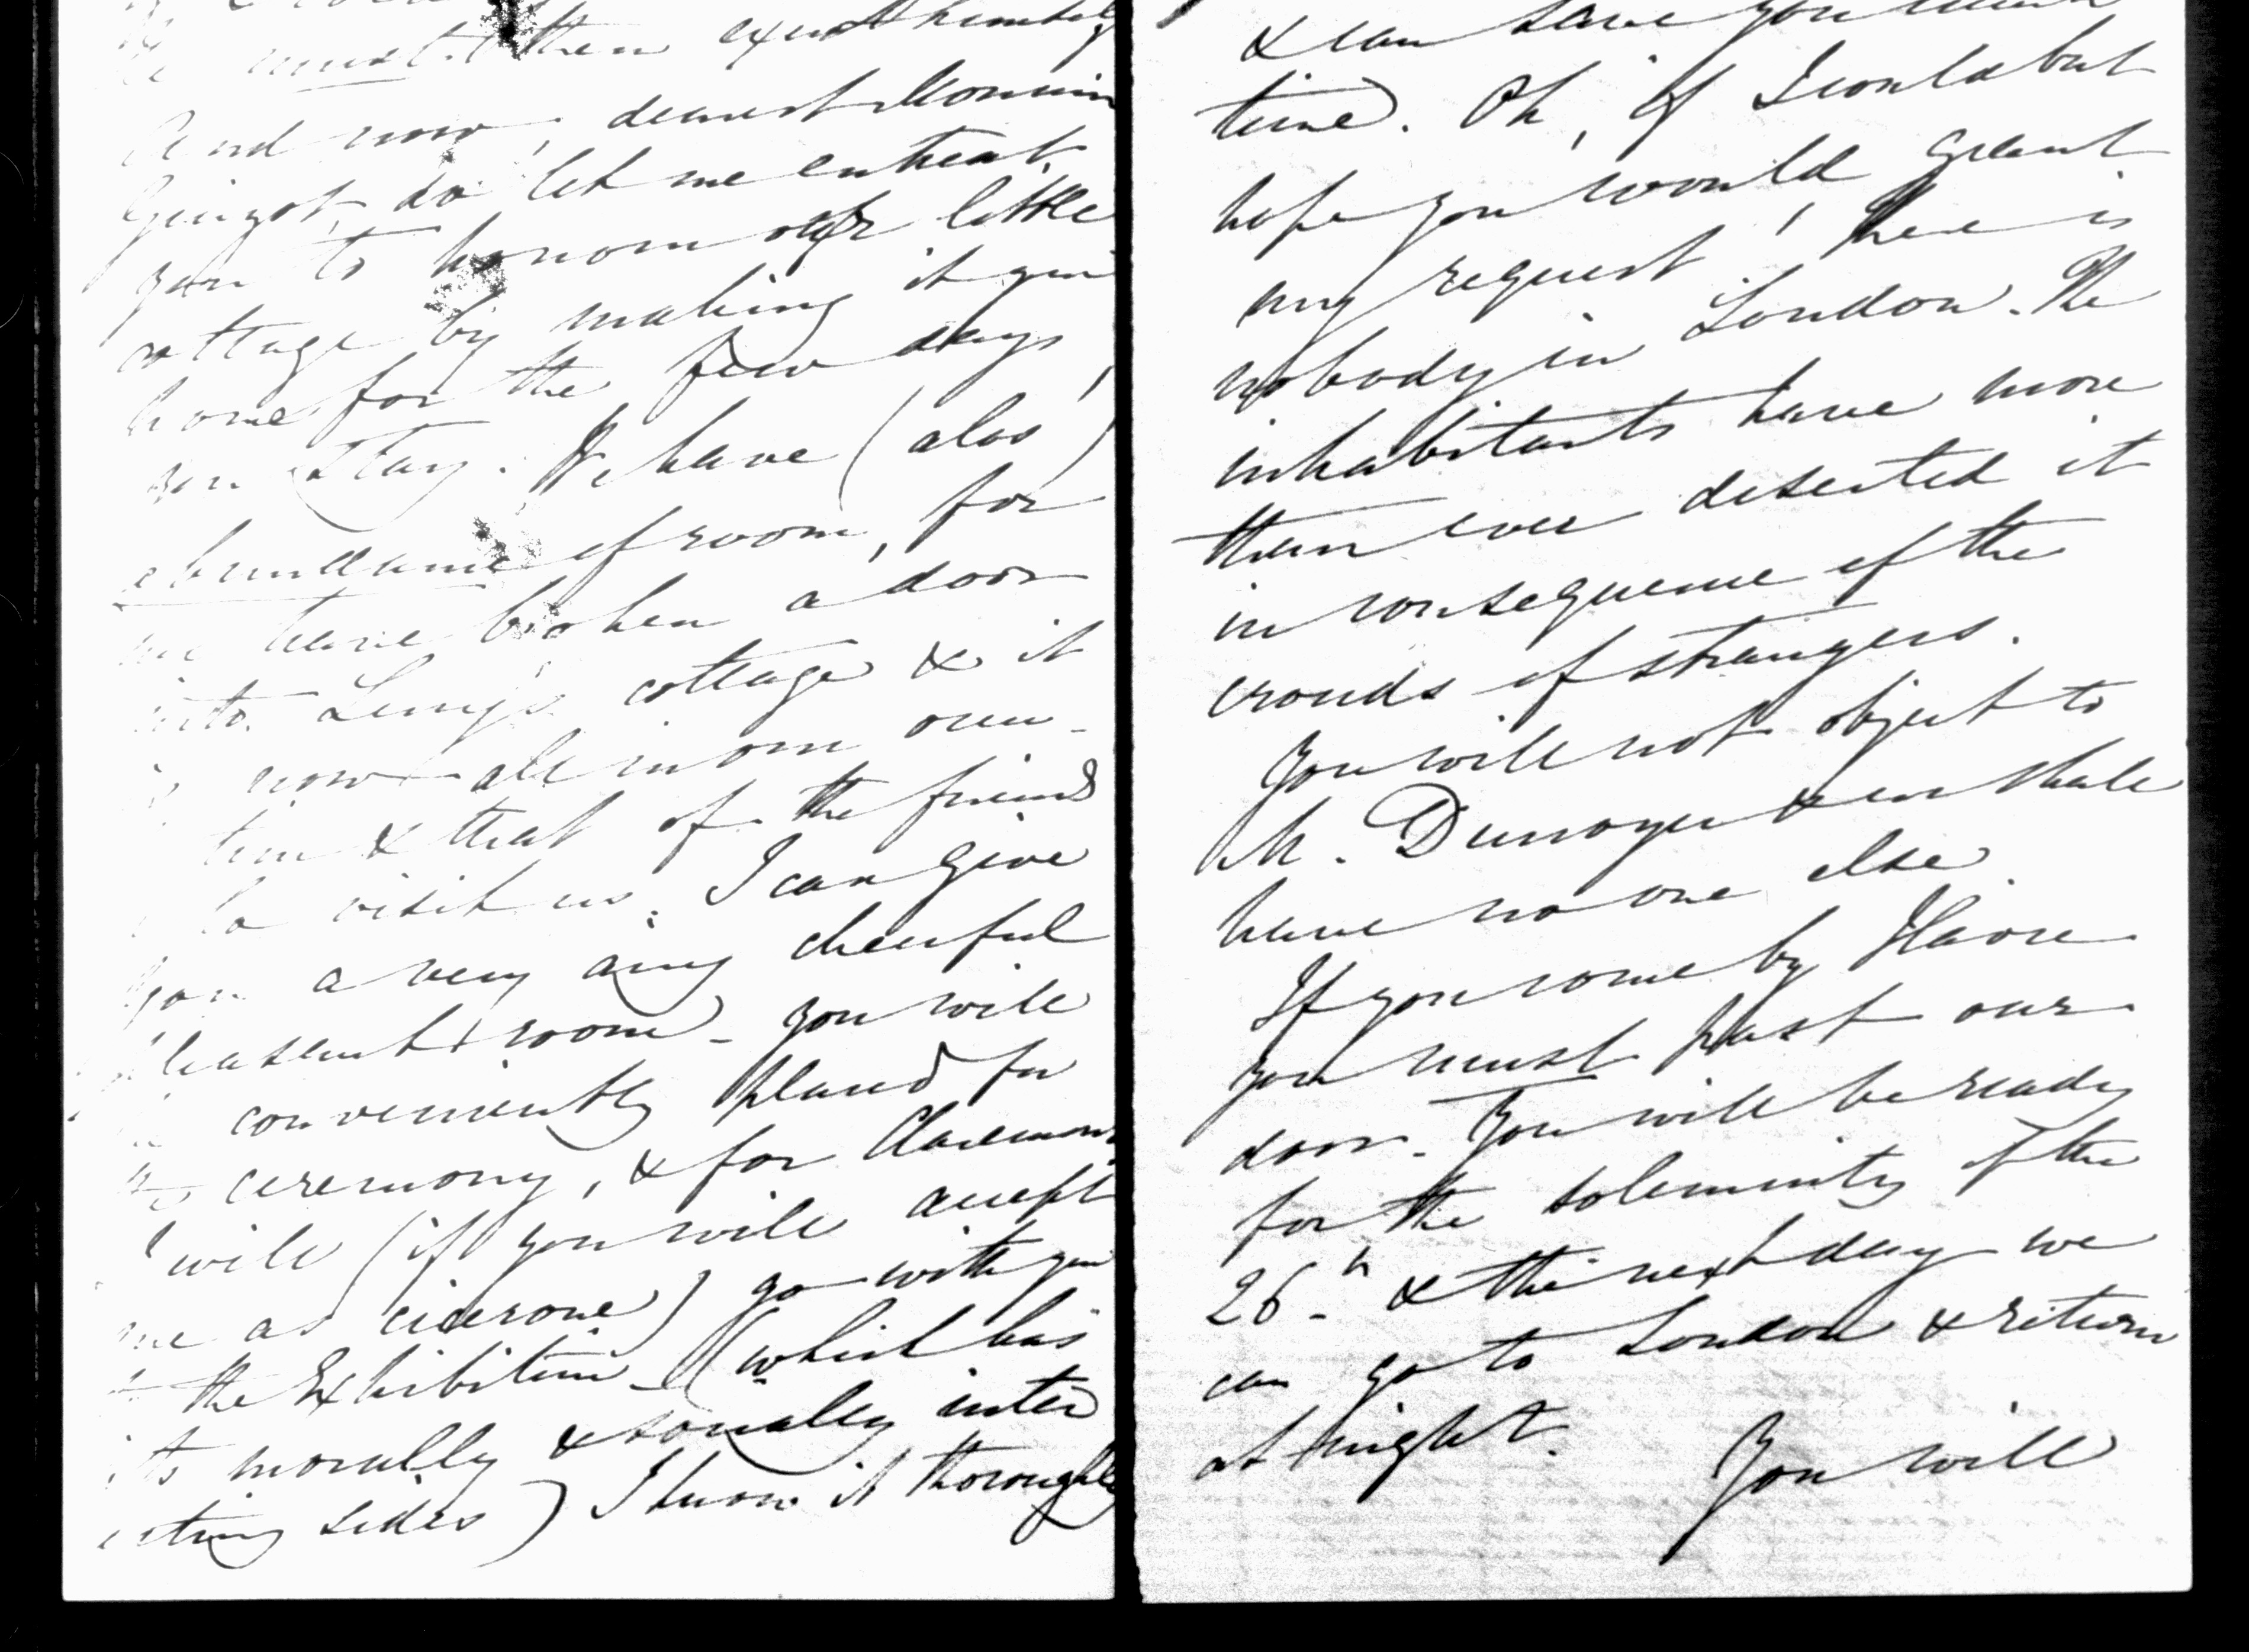 must then exert himself
And now, dearest Monsieur
Guizot, do let me entreat
you to honour our little
cottage by making it your
home for the few days
you stay. We have (alas)
abundance of room, for
we have broken a door
into Lucy's cottage & it
is now all in our occu-
tion & that of the friends
who visit us. I can give
you a very airy cheerful
pleasant room - you will
be conveniently placed for
the ceremony, & for Claremont.
I will (if you will accept
me as cicerone) go with you
to the Exhibition - (which has
its morally & socially inter
esting sides) I know it thoroughly
& can save you much
time. Oh, if I could but
hope you would grant
my request! There is
nobody in London. The
inhabitants have more
than ever deserted it
in consequence of the
crowds of strangers.
You will not object to
M. Dunoyer & we shall
have no one else.
If you come by Havre
you must pass our
door. You will be ready
for the solemnity of the
26th & the next day we
can go to London & return
at night.
You will